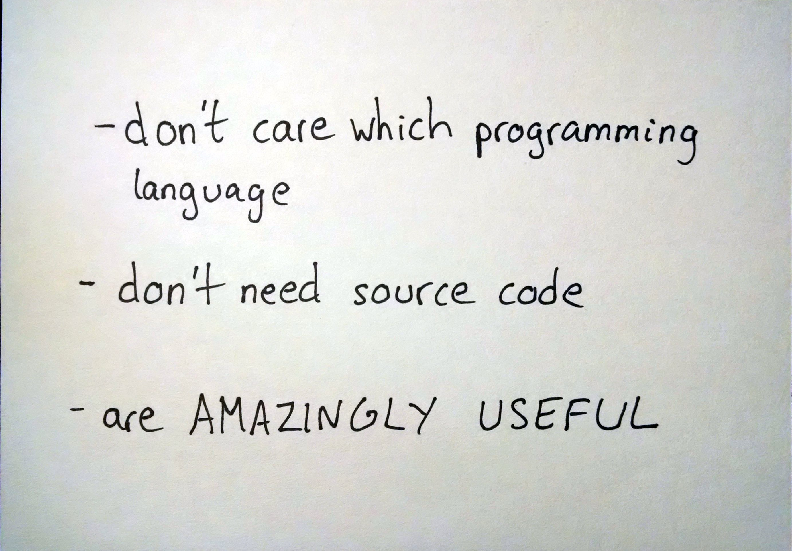 - don't care which programming
language
- don't need source code
- are AMAZINGLY USEFUL